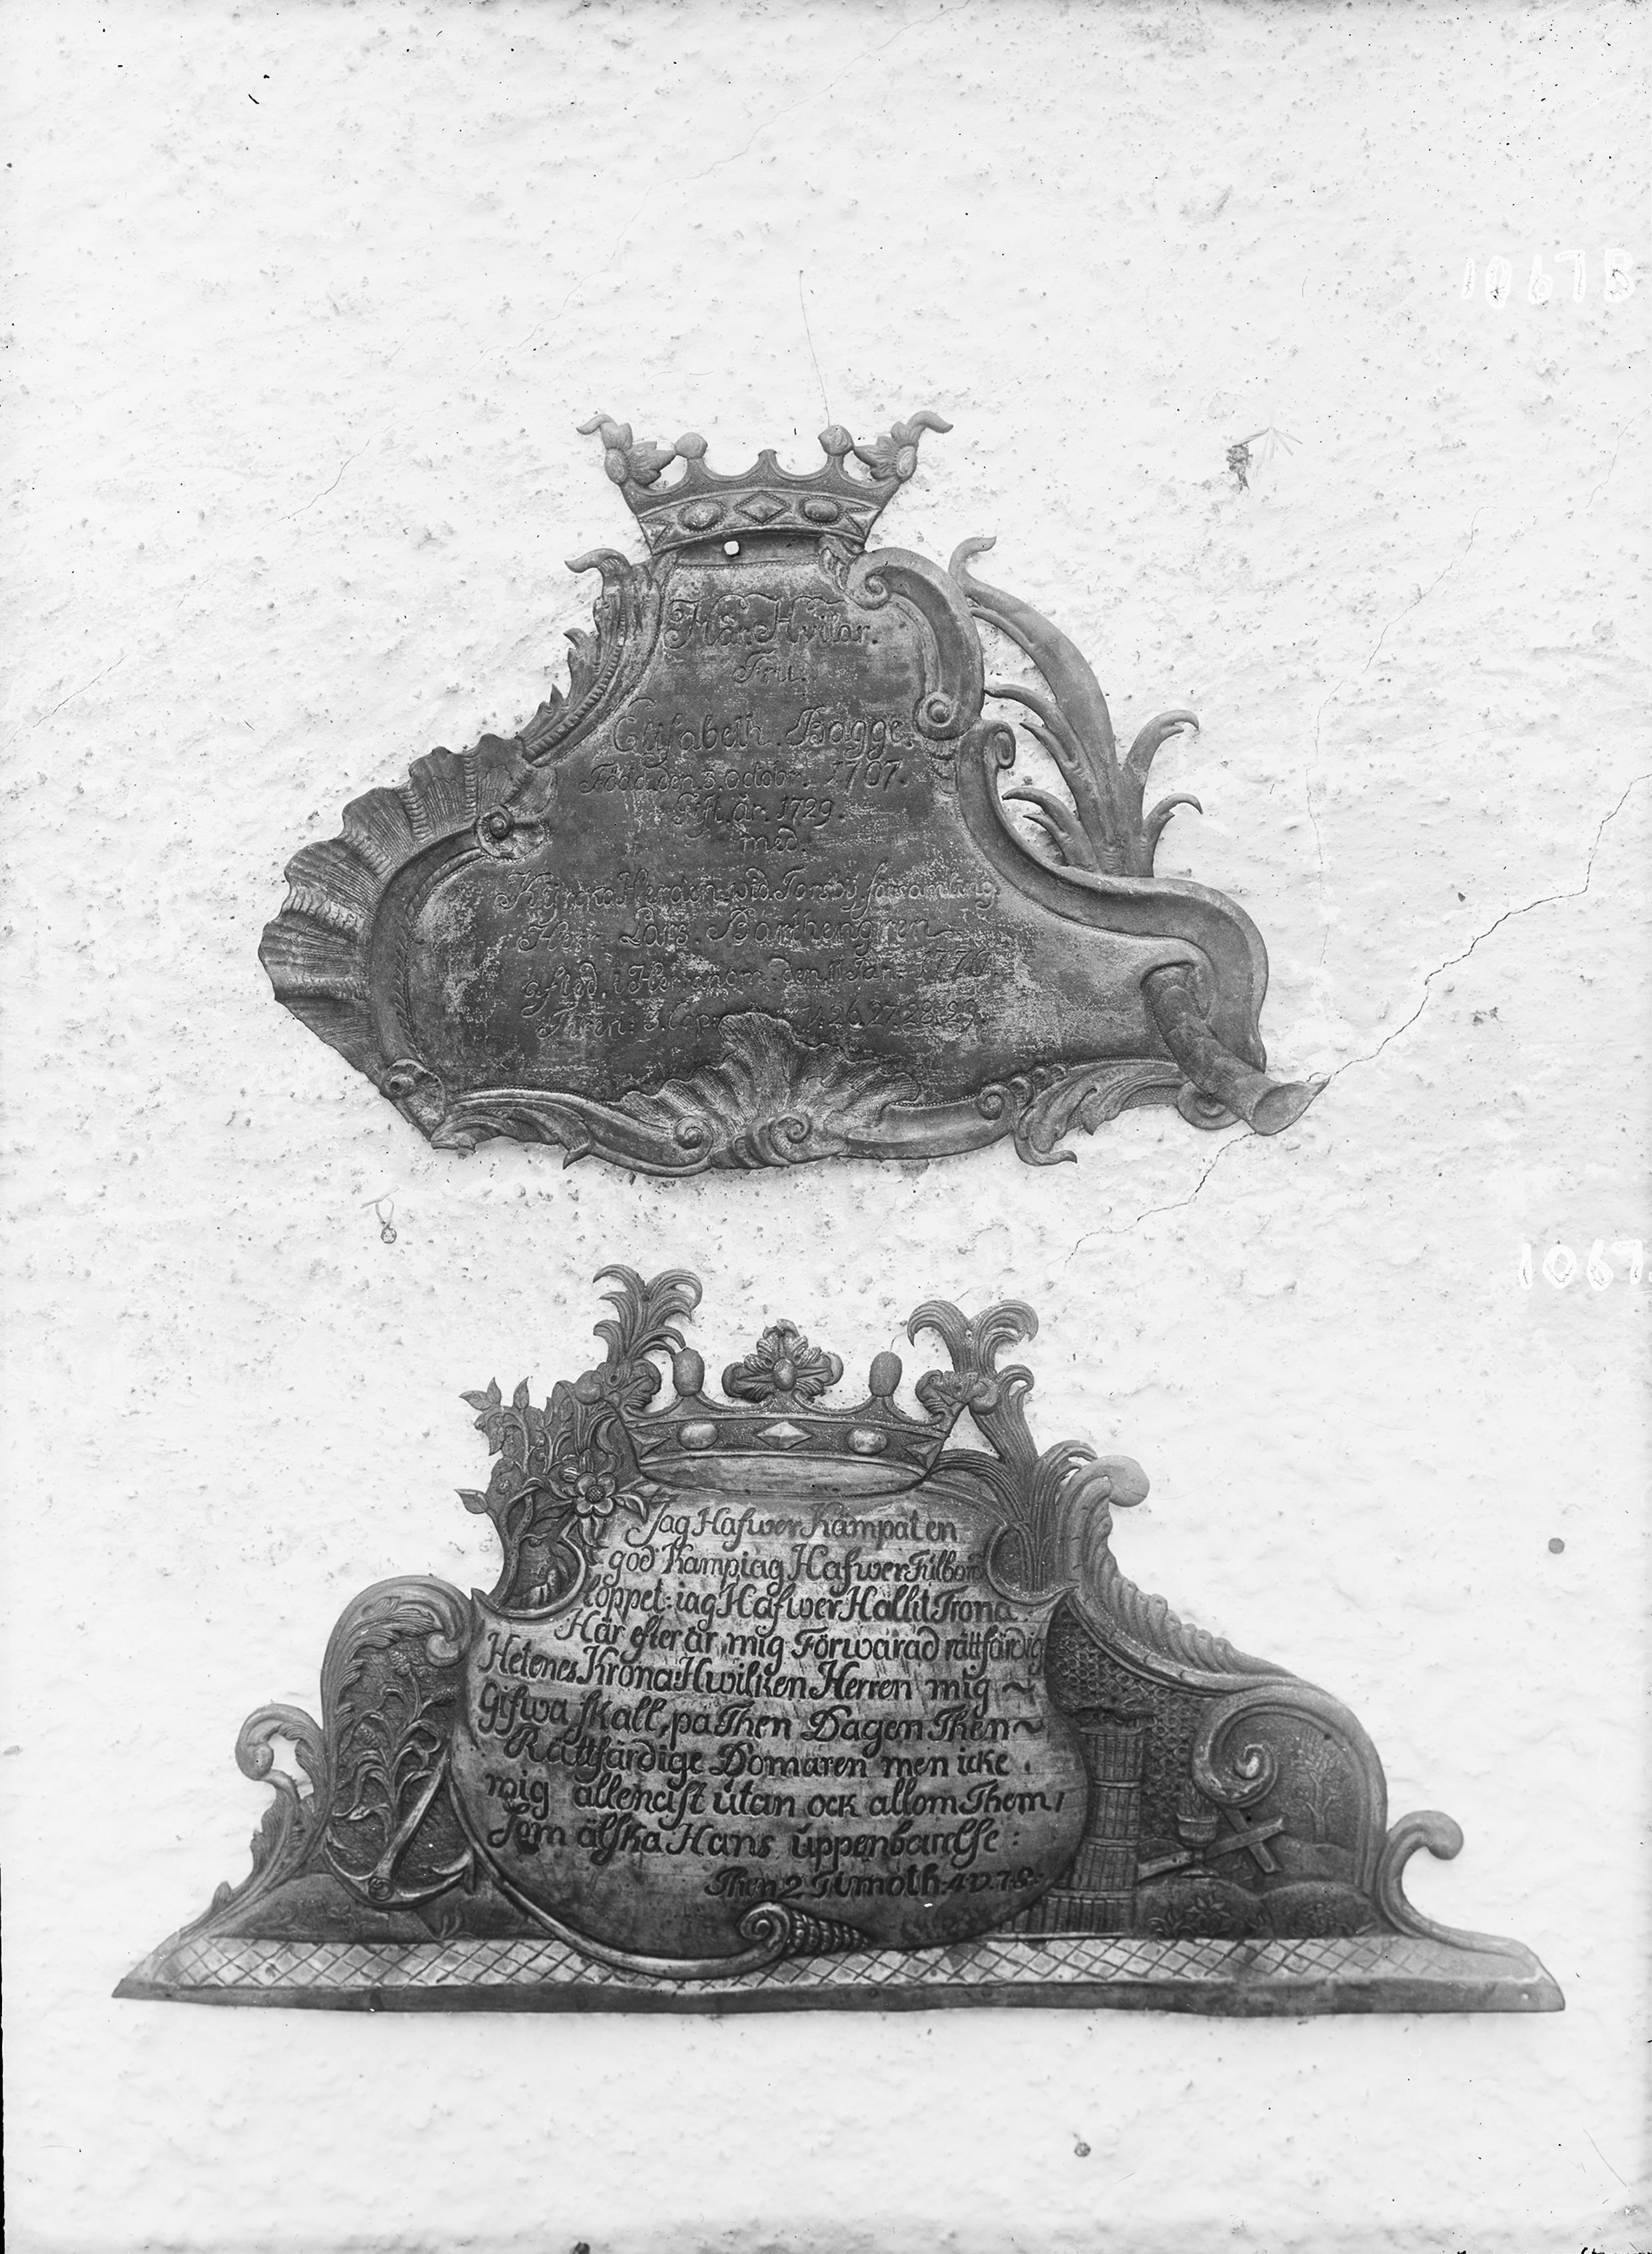 1067B
Här Hvilar.
Fru.
Elisabeth. Bagge.
Född. den. 3. octobr. 1707.
Gift. år. 1729.
med.
Kyrcko Herden. wid. Torsby. församling.
Herr. Lars. Barthengren
afled. i Herranom. den. 11 Jan. 1770.
Thren: 3. Cap: 26.27.28.29.
1067
Jag Hafwer Kämpat en
god Kamp iag Hafwer Fulbor
loppet: iag Hafwer Hållit Trona.
Här efter är mig Förwarad rättfärdig
Hetenes Krona: Hwilken Herren mig ~
Gifwa skall, på Then Dagen Then ~
Rättfärdige Domaren men icke.
mig allenast utan ock allom Them /
Som älska Hans uppenbarelse:
Then 2 Timoth: 4 v. 7.8.